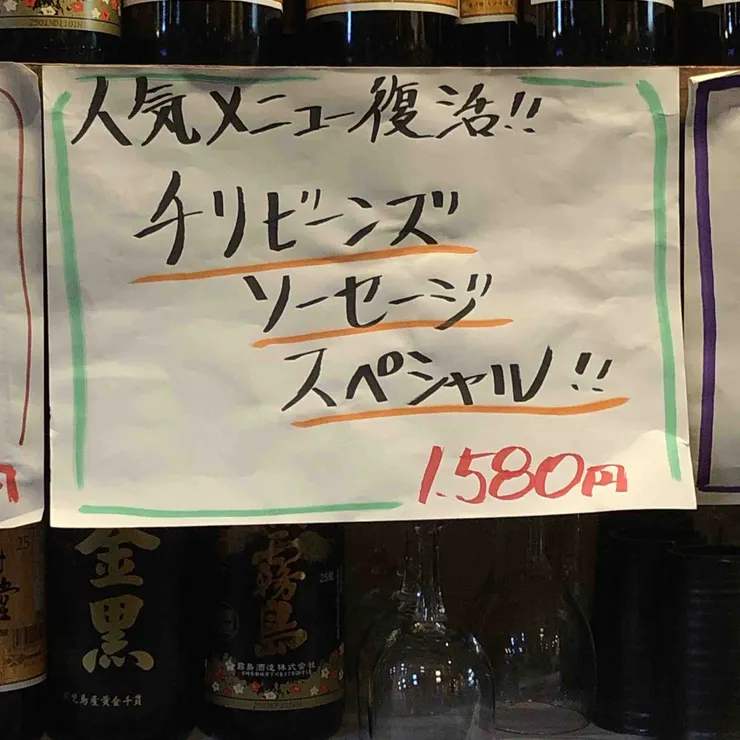 2501ND1101H
人気メニュー復活!!
チリビーンズ
ソーセージ
スペシャル!!
1.580円
円
金黒
霧島
25度
霧島酒造株式会社
25